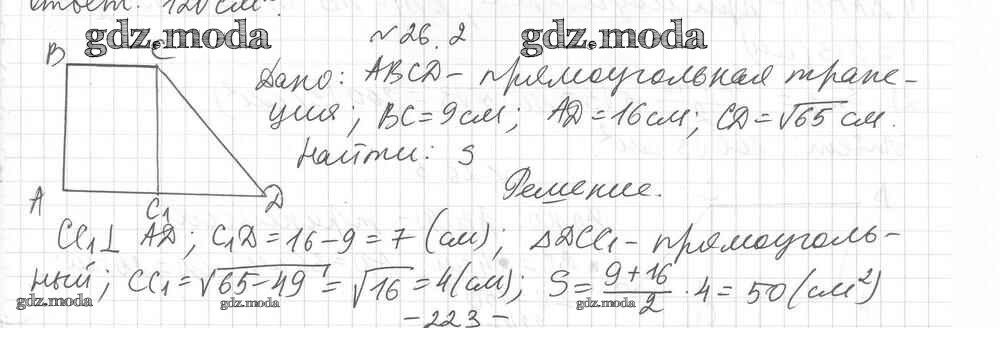 ответ: 120 см².
gdz.moda № 26.2 gdz.moda
B C
Дано: ABCD – прямоугольная трапе-
ция; BC = 9 см; AD = 16 см; CD = √65 см.
Найти: S
Решение.
A C₁ D
CC₁ ⊥ AD; C₁D = 16 – 9 = 7 (см); △DCC₁ – прямоуголь-
ный; CC₁ = √65 – 49 = √16 = 4 (см); S = 9 + 16 / 2 · 4 = 50 (см²)
gdz.moda gdz.moda gdz.moda
– 223 –